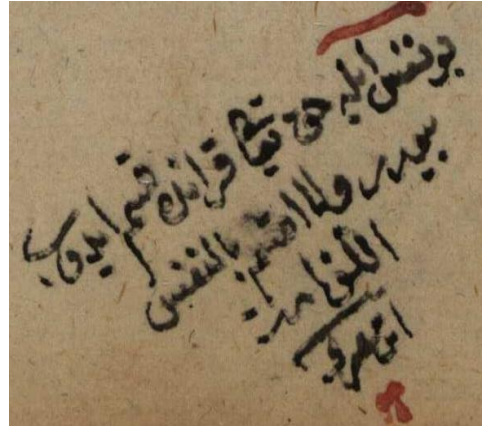 بو نفس ايله حق تعالى قرانده قسم ايدوب
بيورر ولا اقسم بالنفس
اللوامه